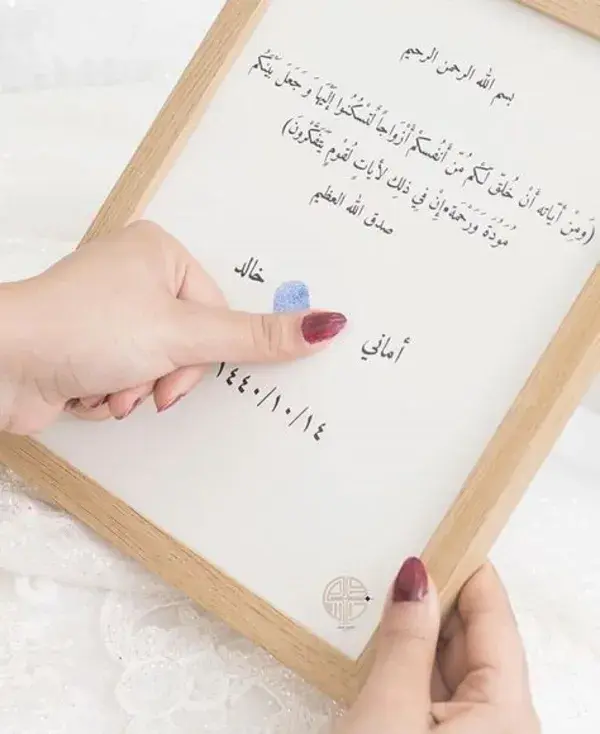 بسم الله الرحمن الرحيم
(وَمِنْ آيَاتِهِ أَنْ خَلَقَ لَكُم مِّنْ أَنفُسِكُمْ أَزْوَاجاً لِّتَسْكُنُوا إِلَيْهَا وَجَعَلَ بَيْنَكُم
مَّوَدَّةً وَرَحْمَةً إِنَّ فِي ذَلِكَ لَآيَاتٍ لِّقَوْمٍ يَتَفَكَّرُونَ)
صدق الله العظيم
أماني خالد
١٤٤٠/١٠/١٤